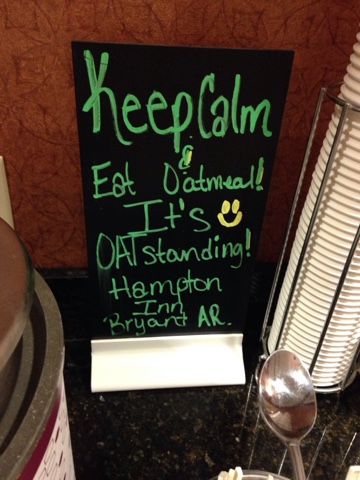 Keep Calm
&
Eat Oatmeal!
It's
OATstanding!
Hampton
Inn
Bryant AR.